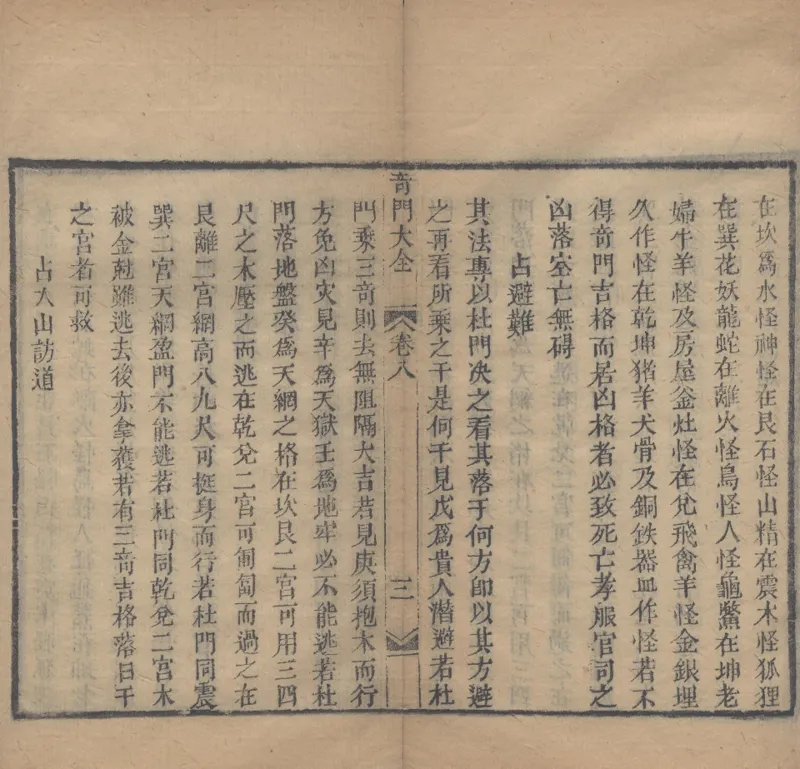 在坎爲水怪神怪在艮石怪山精在震木怪狐狸
在巽花妖龍蛇在離火怪鳥怪人怪龜鱉在坤老
婦牛羊怪及房屋釜灶怪在兌飛禽羊怪金銀埋
久作怪在乾坤猪羊犬骨及銅鉄器皿作怪若不
得奇門吉格而居凶格者必致死亡孝服官司之
凶落空亡無碍
占避難
其法專以杜門决之看其落于何方卽以其方避
之再看所乘之干是何干見戊爲貴人潛避若杜
奇門大全
卷八
三
門乘三奇則去無阻隔大吉若見庚須抱木而行
方免凶灾見辛爲天獄壬爲地牢必不能逃若杜
門落地盤癸爲天網之格在坎艮二宮可用三四
尺之木壓之而逃在乾兌二宮可匍匐而過之在
艮離二宮網高八九尺可挺身而行若杜門同震
巽二宮天網盈門不能逃若杜門同乾兌二宮木
被金尅雖逃去後亦拿獲若有三奇吉格落日干
之宮者可救
占入山訪道